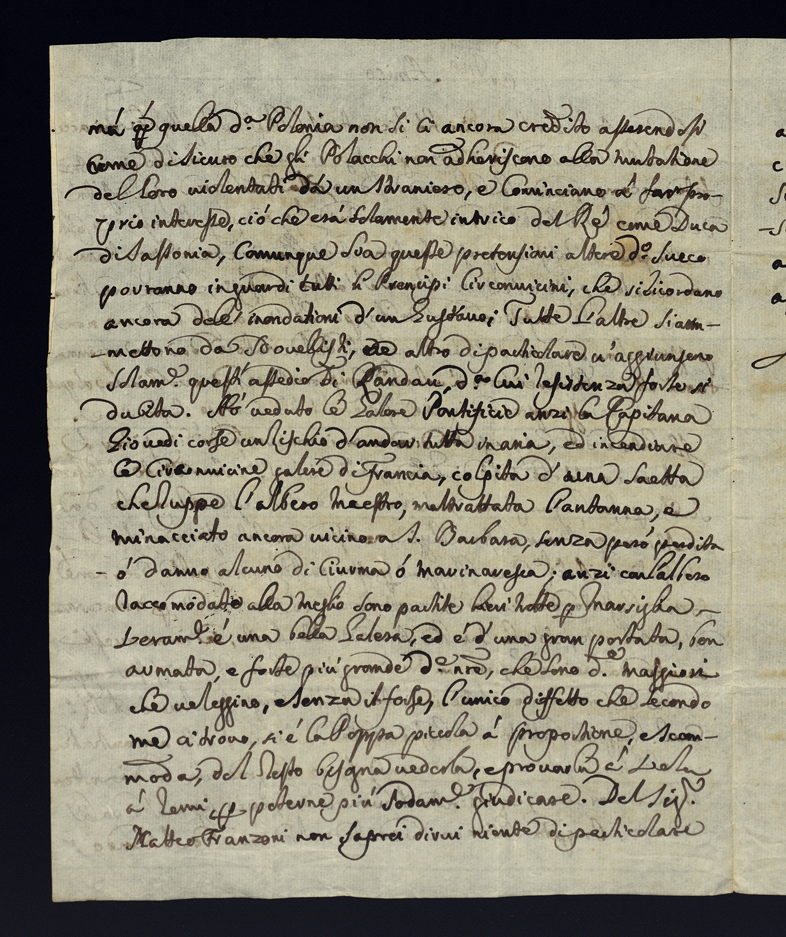 má p quella d.ª Polonia non si li ancora credito asserendosi
come di sicuro che gli Polacchi non adheriscono alla mutatione
del loro violentati da un straniero, e Cominciano á far pro-
prio interesse, ció che erá solamente intrico del Ré come Duca
di Sassonia, Comunque sva queste pretensioni altere d.º Sueco
povranno in guardi tutti li Prencipi Circonvicini, che si ricordano
ancora dell' inondationi d'un Gustavo; Tutte l'altre si am-
mettono da altro di particolare v'aggiungeno
solam.e quest' assedio di Landau, d. cui resistenza forte si
dubita. Hó veduto le Galere Pontificie anzi la Capitana
Giovedi corse un rischio d'andar tutta in aria, ed incendiare
le Circonvicine galere di Francia, colpita d'una saetta
che ruppe l'albero Maestro, maltrattata l'antanna, e
minacciato ancora vicino a S. Barbara, senza peró perdita
ó danno alcuno di Ciurma ó marinaresca; anzi con l'albero
raccomodato alla meglio sono partite hieri notte p Marsiglia
Veram.e é una bella Galera, ed é d'una gran portata, ben
armata, e forte piú grande d.e nre, che sono d.e maggiori
che veleggino, e senza il forse, l'unico diffetto che secondo
me ci trovo, si é la Poppa piccola á proportione, e scom-
moda, del resto bisogna vederla, e provarla á Vela
á remi p poterne piú fodam.e giudicare. Del Sig.r
Matteo Franzoni non saprei dirvi niente di particolare